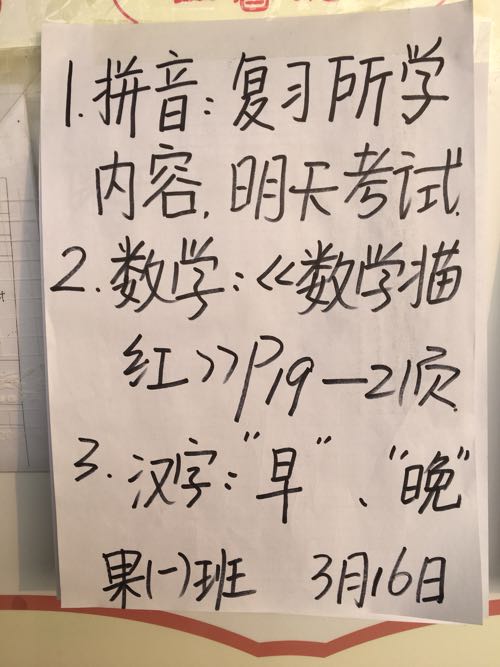 1.拼音:复习所学
内容,明天考试.
2.数学:《数学描
红》P19—21页.
3.汉字:"早"、"晚"
果(一)班 3月16日